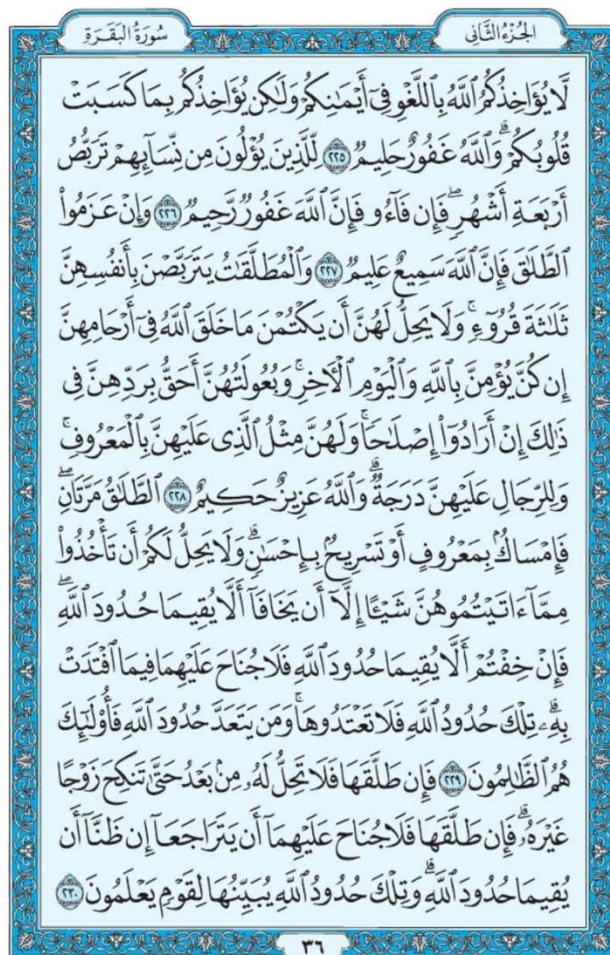 الجُزْءُ الثَّانِي
سُورَةُ البَقَرَةِ
لَّا يُؤَاخِذُكُمُ ٱللَّهُ بِٱللَّغْوِ فِىٓ أَيْمَٰنِكُمْ وَلَٰكِن يُؤَاخِذُكُم بِمَا كَسَبَتْ
قُلُوبُكُمْ ۗ وَٱللَّهُ غَفُورٌ حَلِيمٌ ٢٢٥ لِّلَّذِينَ يُؤْلُونَ مِن نِّسَآئِهِمْ تَرَبُّصُ
أَرْبَعَةِ أَشْهُرٍ ۖ فَإِن فَآءُو فَإِنَّ ٱللَّهَ غَفُورٌ رَّحِيمٌ ٢٢٦ وَإِنْ عَزَمُوا۟
ٱلطَّلَٰقَ فَإِنَّ ٱللَّهَ سَمِيعٌ عَلِيمٌ ٢٢٧ وَٱلْمُطَلَّقَٰتُ يَتَرَبَّصْنَ بِأَنفُسِهِنَّ
ثَلَٰثَةَ قُرُوٓءٍ ۚ وَلَا يَحِلُّ لَهُنَّ أَن يَكْتُمْنَ مَا خَلَقَ ٱللَّهُ فِىٓ أَرْحَامِهِنَّ
إِن كُنَّ يُؤْمِنَّ بِٱللَّهِ وَٱلْيَوْمِ ٱلْءَاخِرِ ۚ وَبُعُولَتُهُنَّ أَحَقُّ بِرَدِّهِنَّ فِى
ذَٰلِكَ إِنْ أَرَادُوٓا۟ إِصْلَٰحًا ۚ وَلَهُنَّ مِثْلُ ٱلَّذِى عَلَيْهِنَّ بِٱلْمَعْرُوفِ ۚ
وَلِلرِّجَالِ عَلَيْهِنَّ دَرَجَةٌ ۗ وَٱللَّهُ عَزِيزٌ حَكِيمٌ ٢٢٨ ٱلطَّلَٰقُ مَرَّتَانِ ۖ
فَإِمْسَاكٌۢ بِمَعْرُوفٍ أَوْ تَسْرِيحٌۢ بِإِحْسَٰنٍ ۗ وَلَا يَحِلُّ لَكُمْ أَن تَأْخُذُوا۟
مِمَّآ ءَاتَيْتُمُوهُنَّ شَيْـًٔا إِلَّآ أَن يَخَافَآ أَلَّا يُقِيمَا حُدُودَ ٱللَّهِ ۖ
فَإِنْ خِفْتُمْ أَلَّا يُقِيمَا حُدُودَ ٱللَّهِ فَلَا جُنَاحَ عَلَيْهِمَا فِيمَا ٱفْتَدَتْ
بِهِۦ ۗ تِلْكَ حُدُودُ ٱللَّهِ فَلَا تَعْتَدُوهَا ۚ وَمَن يَتَعَدَّ حُدُودَ ٱللَّهِ فَأُو۟لَٰٓئِكَ
هُمُ ٱلظَّٰلِمُونَ ٢٢٩ فَإِن طَلَّقَهَا فَلَا تَحِلُّ لَهُۥ مِنۢ بَعْدُ حَتَّىٰ تَنكِحَ زَوْجًا
غَيْرَهُۥ ۗ فَإِن طَلَّقَهَا فَلَا جُنَاحَ عَلَيْهِمَآ أَن يَتَرَاجَعَآ إِن ظَنَّآ أَن
يُقِيمَا حُدُودَ ٱللَّهِ ۗ وَتِلْكَ حُدُودُ ٱللَّهِ يُبَيِّنُهَا لِقَوْمٍ يَعْلَمُونَ ٢٣٠
٣٦